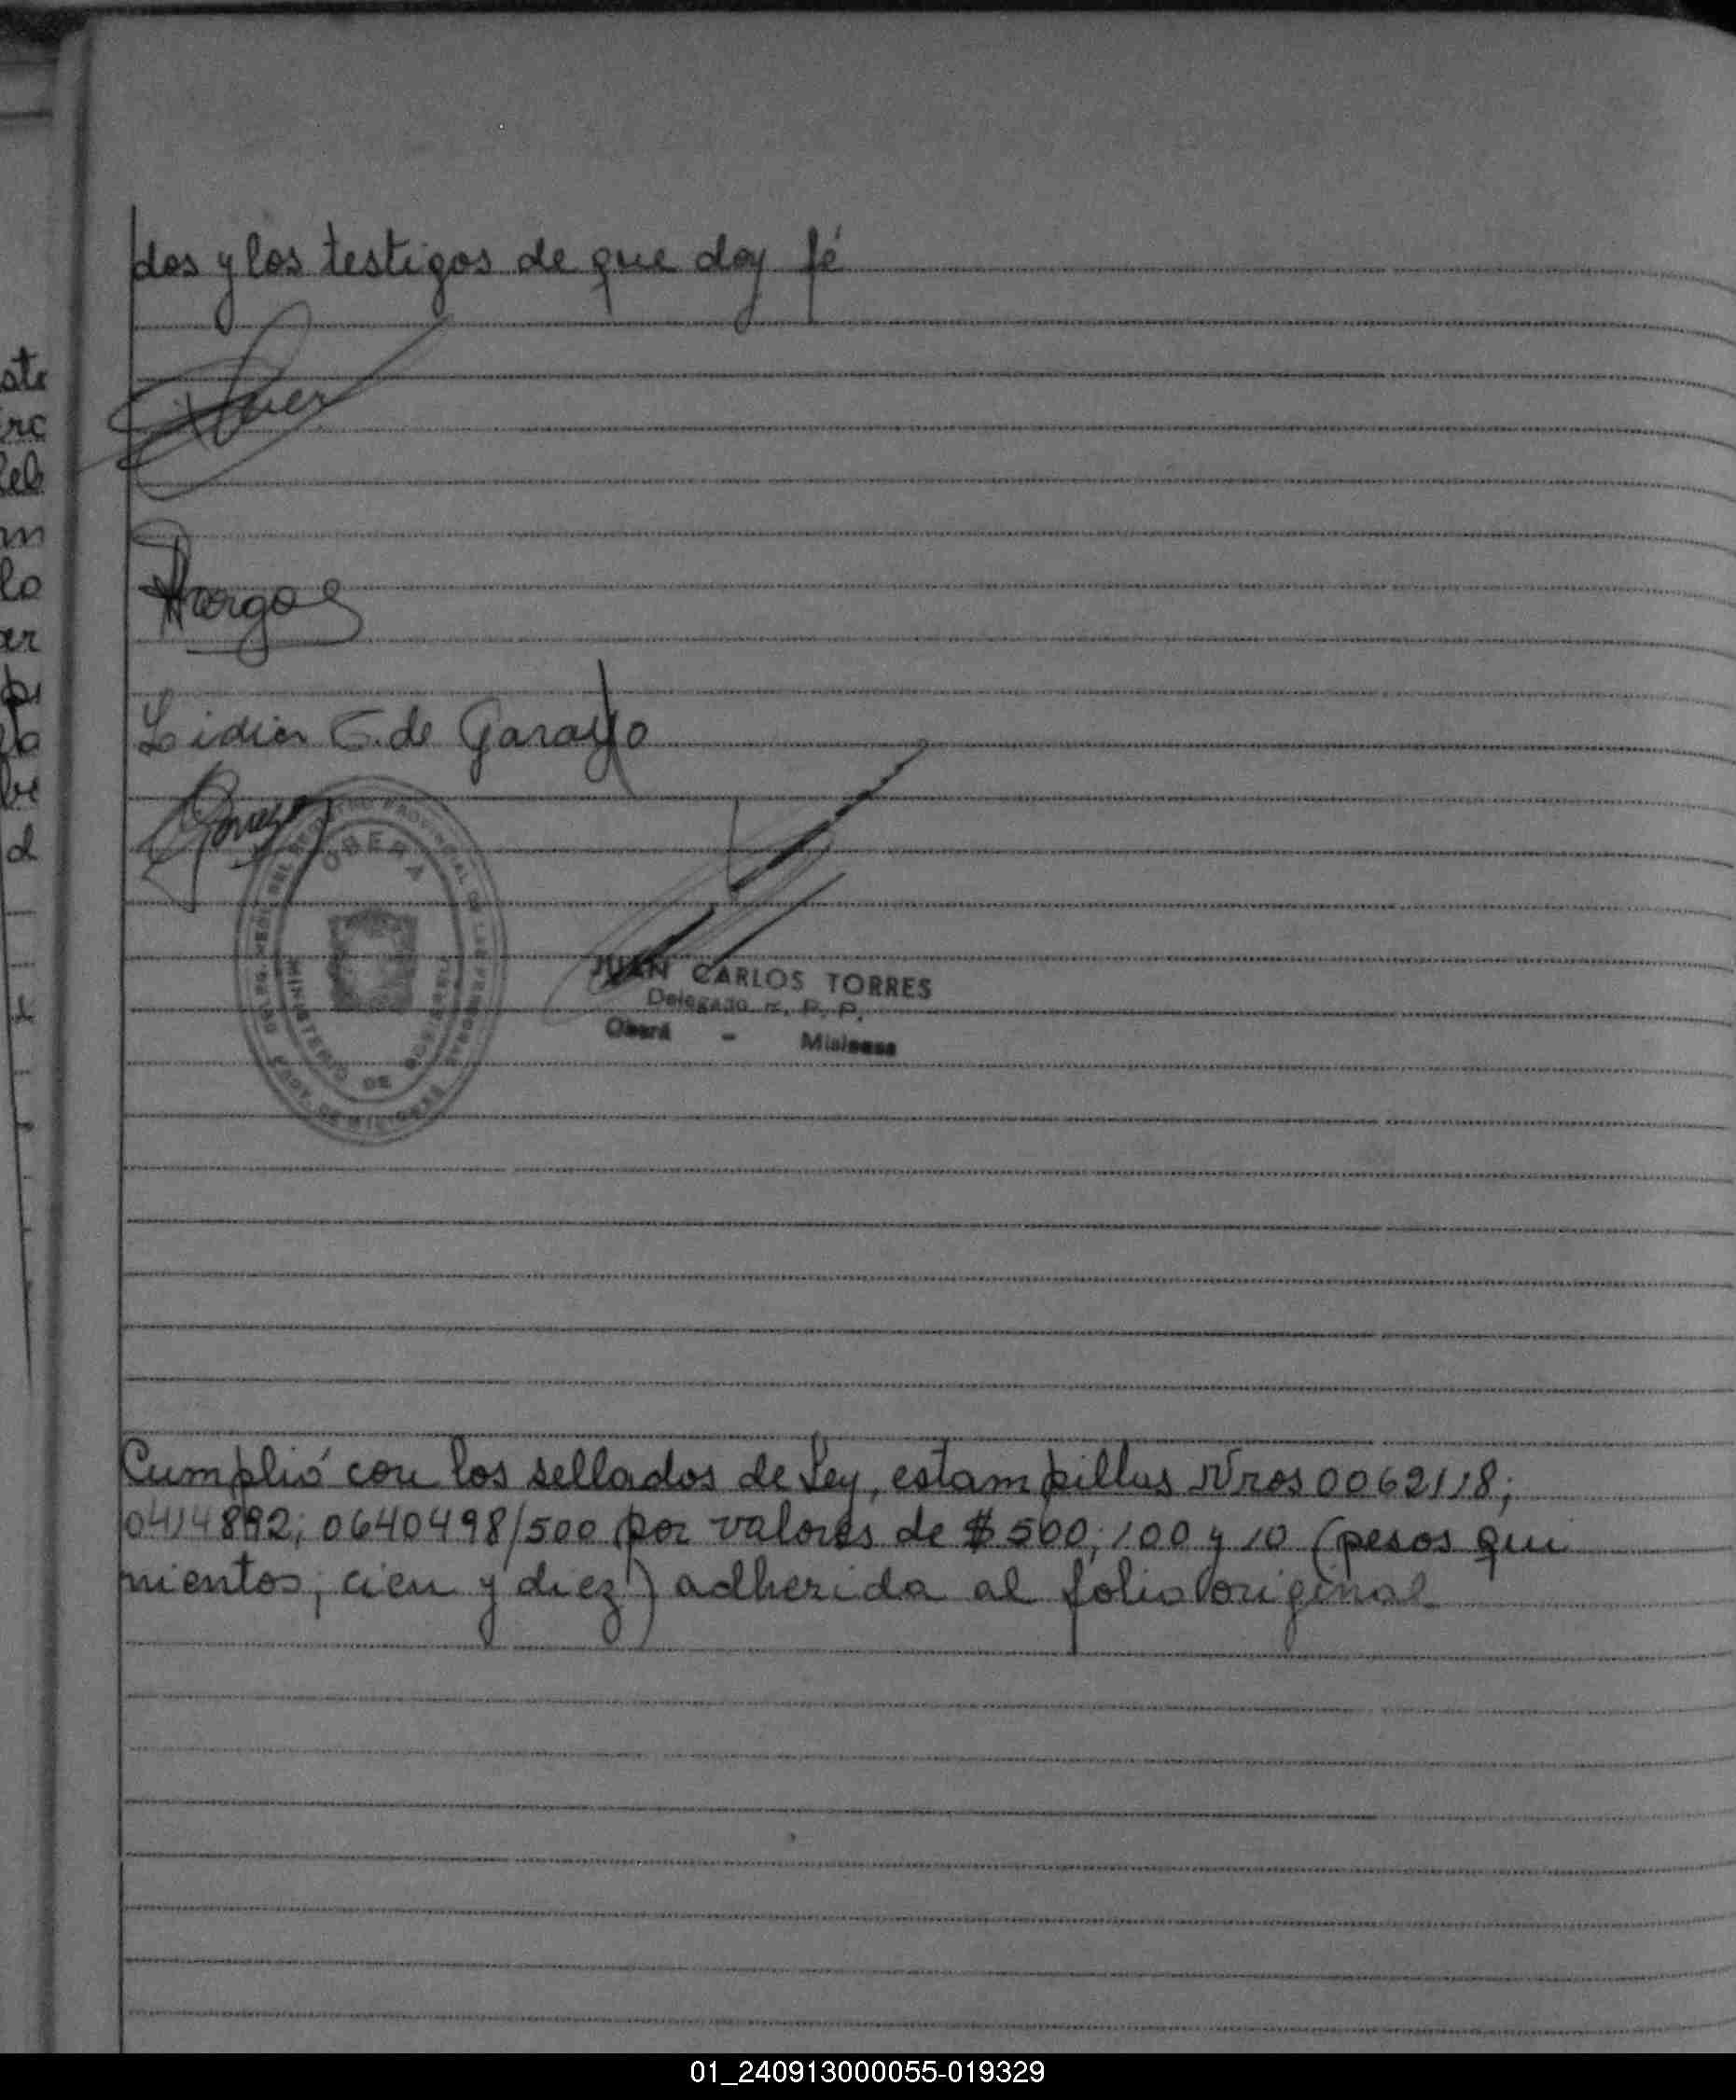 dos y los testigos de que doy fé
Lidia C. de Garayo
OBERA
MINISTERIO DE GOBIERNO
PROV. DE MISIONES
JUAN CARLOS TORRES
Delegado R. P. P.
Oberá - Misiones
Cumplió con los sellados de Ley, estampillas Nros 0062118;
0414892; 0640498/500 por valores de $ 500; 100 y 10 (pesos qui
nientos; cien y diez) adherida al folio original
01_240913000055-019329